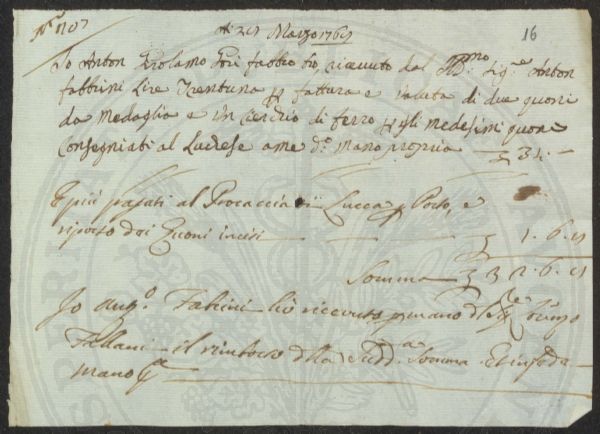 16
Marzo 1765
Io Anton Girolamo fabbro ho ricevuto dal Sig.e Anton
fabbrini Lire Trentuna p fattura e valuta di due quoni
da Medaglia e un Cerchio di ferro p gli Medesimi quoni
Consegniati al Luchese a me d.o mano propria — 31 —
E più pagati al Procaccia di Lucca p Porto, e
riporto dei Quoni incisi — 1.6.
Somma — 32.6.
Io Ang.o Fabrini hò ricevuto p mano del Lorenzo
il rimborso della Sudd.a Somma Et in fede
mano